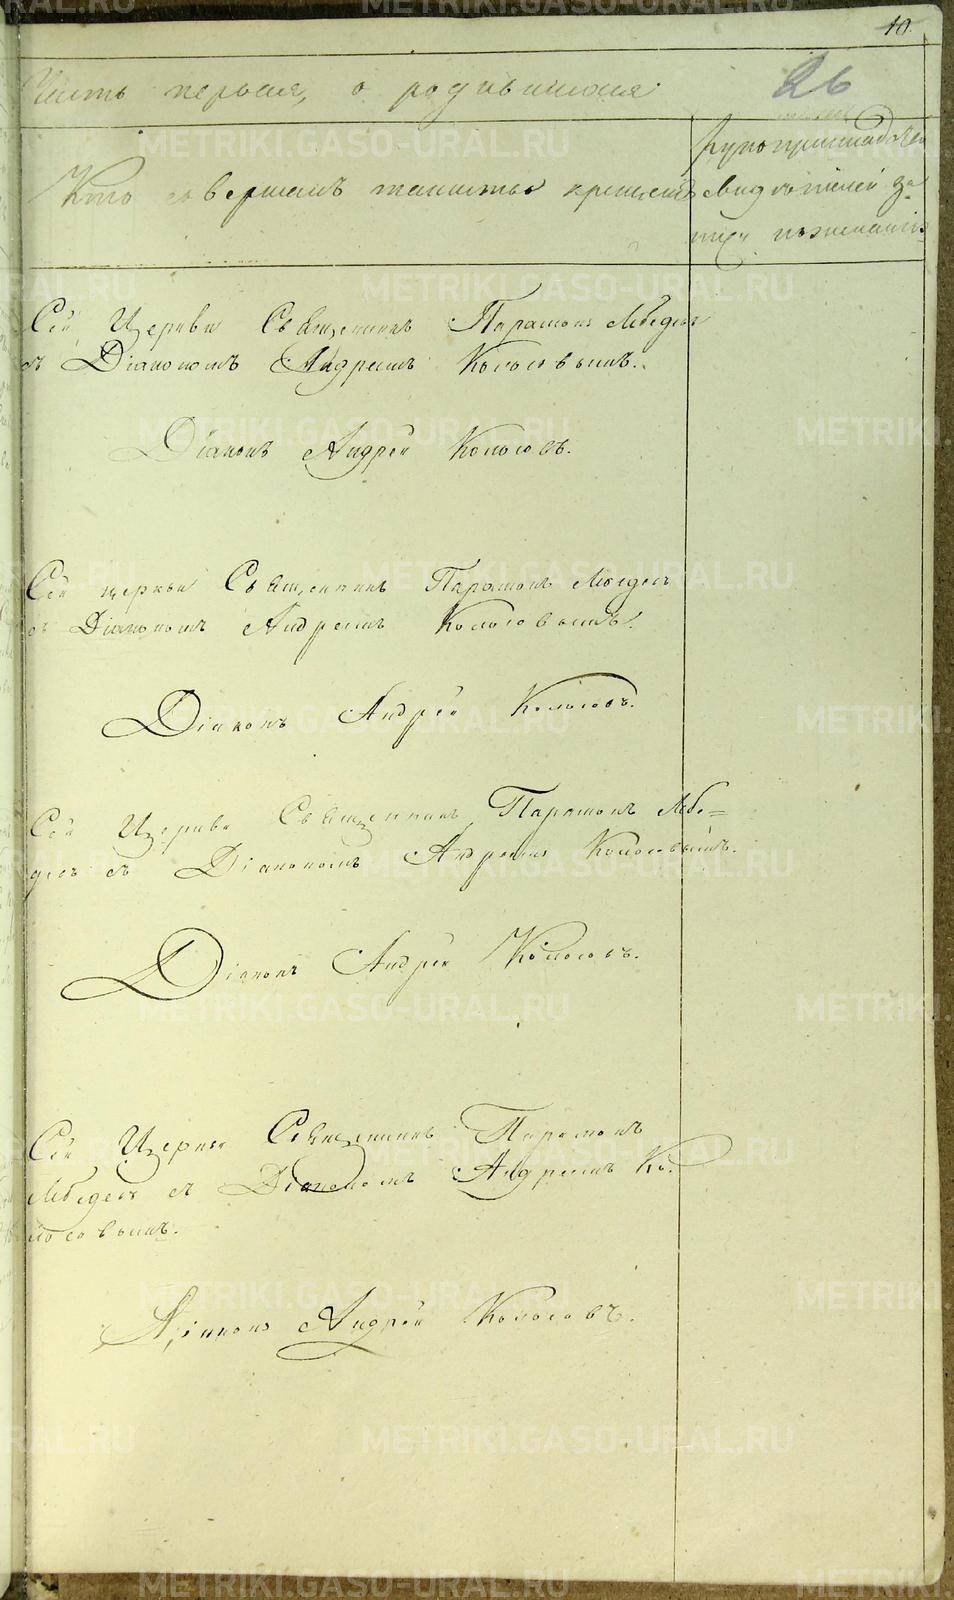 10.
Часть первая, о родившихся
26
Кто совершалъ таинство крещенія
Рукоприкладство
свидѣтелей за-
писи по желанію
Сей Церкви Священникъ Парамонъ Лебедевъ
съ Діакономъ Андреемъ Колосовымъ.
Діаконъ Андрей Колосовъ.
Сей церкви Священникъ Парамонъ Лебедевъ
съ Діакономъ Андреемъ Колосовымъ.
Діаконъ Андрей Колосовъ.
Сей Церкви Священникъ Парамонъ Лебе=
девъ съ Діакономъ Андреемъ Колосовымъ.
Діаконъ Андрей Колосовъ.
Сей Церкви Священникъ Парамонъ
Лебедевъ съ Діакономъ Андреемъ Ко-
лосовымъ.
Діаконъ Андрей Колосовъ.
METRIKI.GASO-URAL.RU